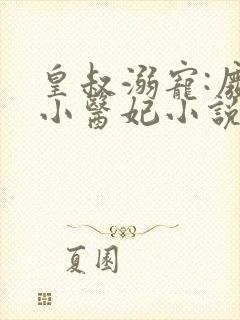 皇叔溺寵:廢
小醫妃小說
夏園